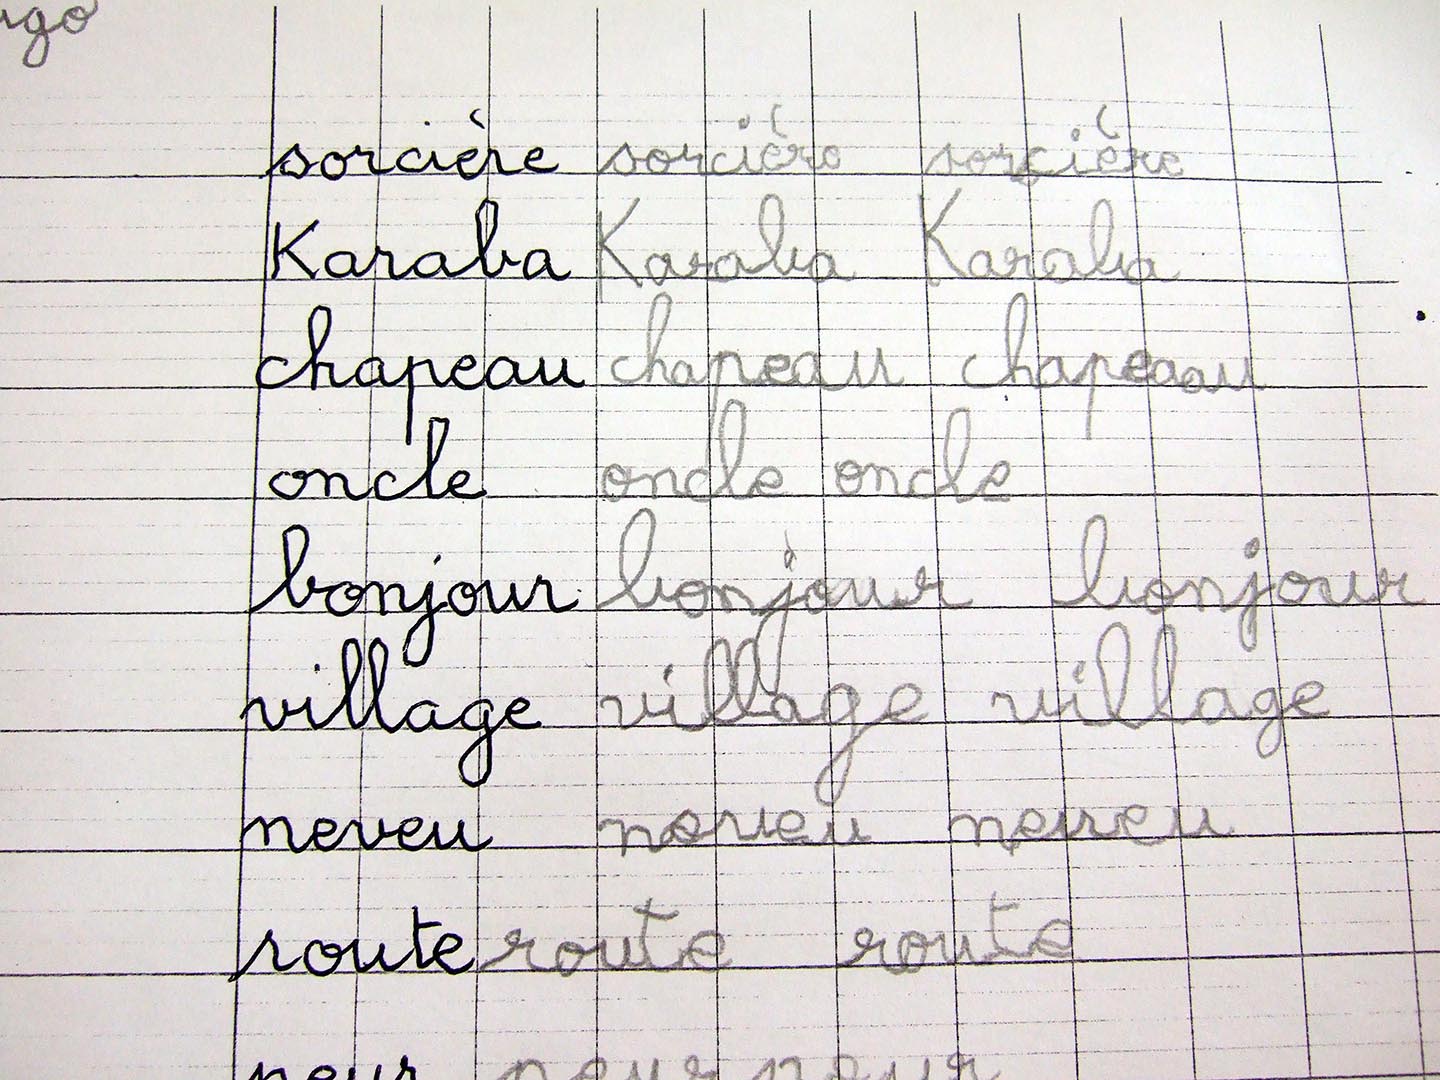 sorcière sorcière sorcière
Karaba Karaba Karaba
chapeau chapeau chapeaau
oncle oncle oncle
bonjour bonjour bonjour
village village village
neveu neveu neveu
route route route